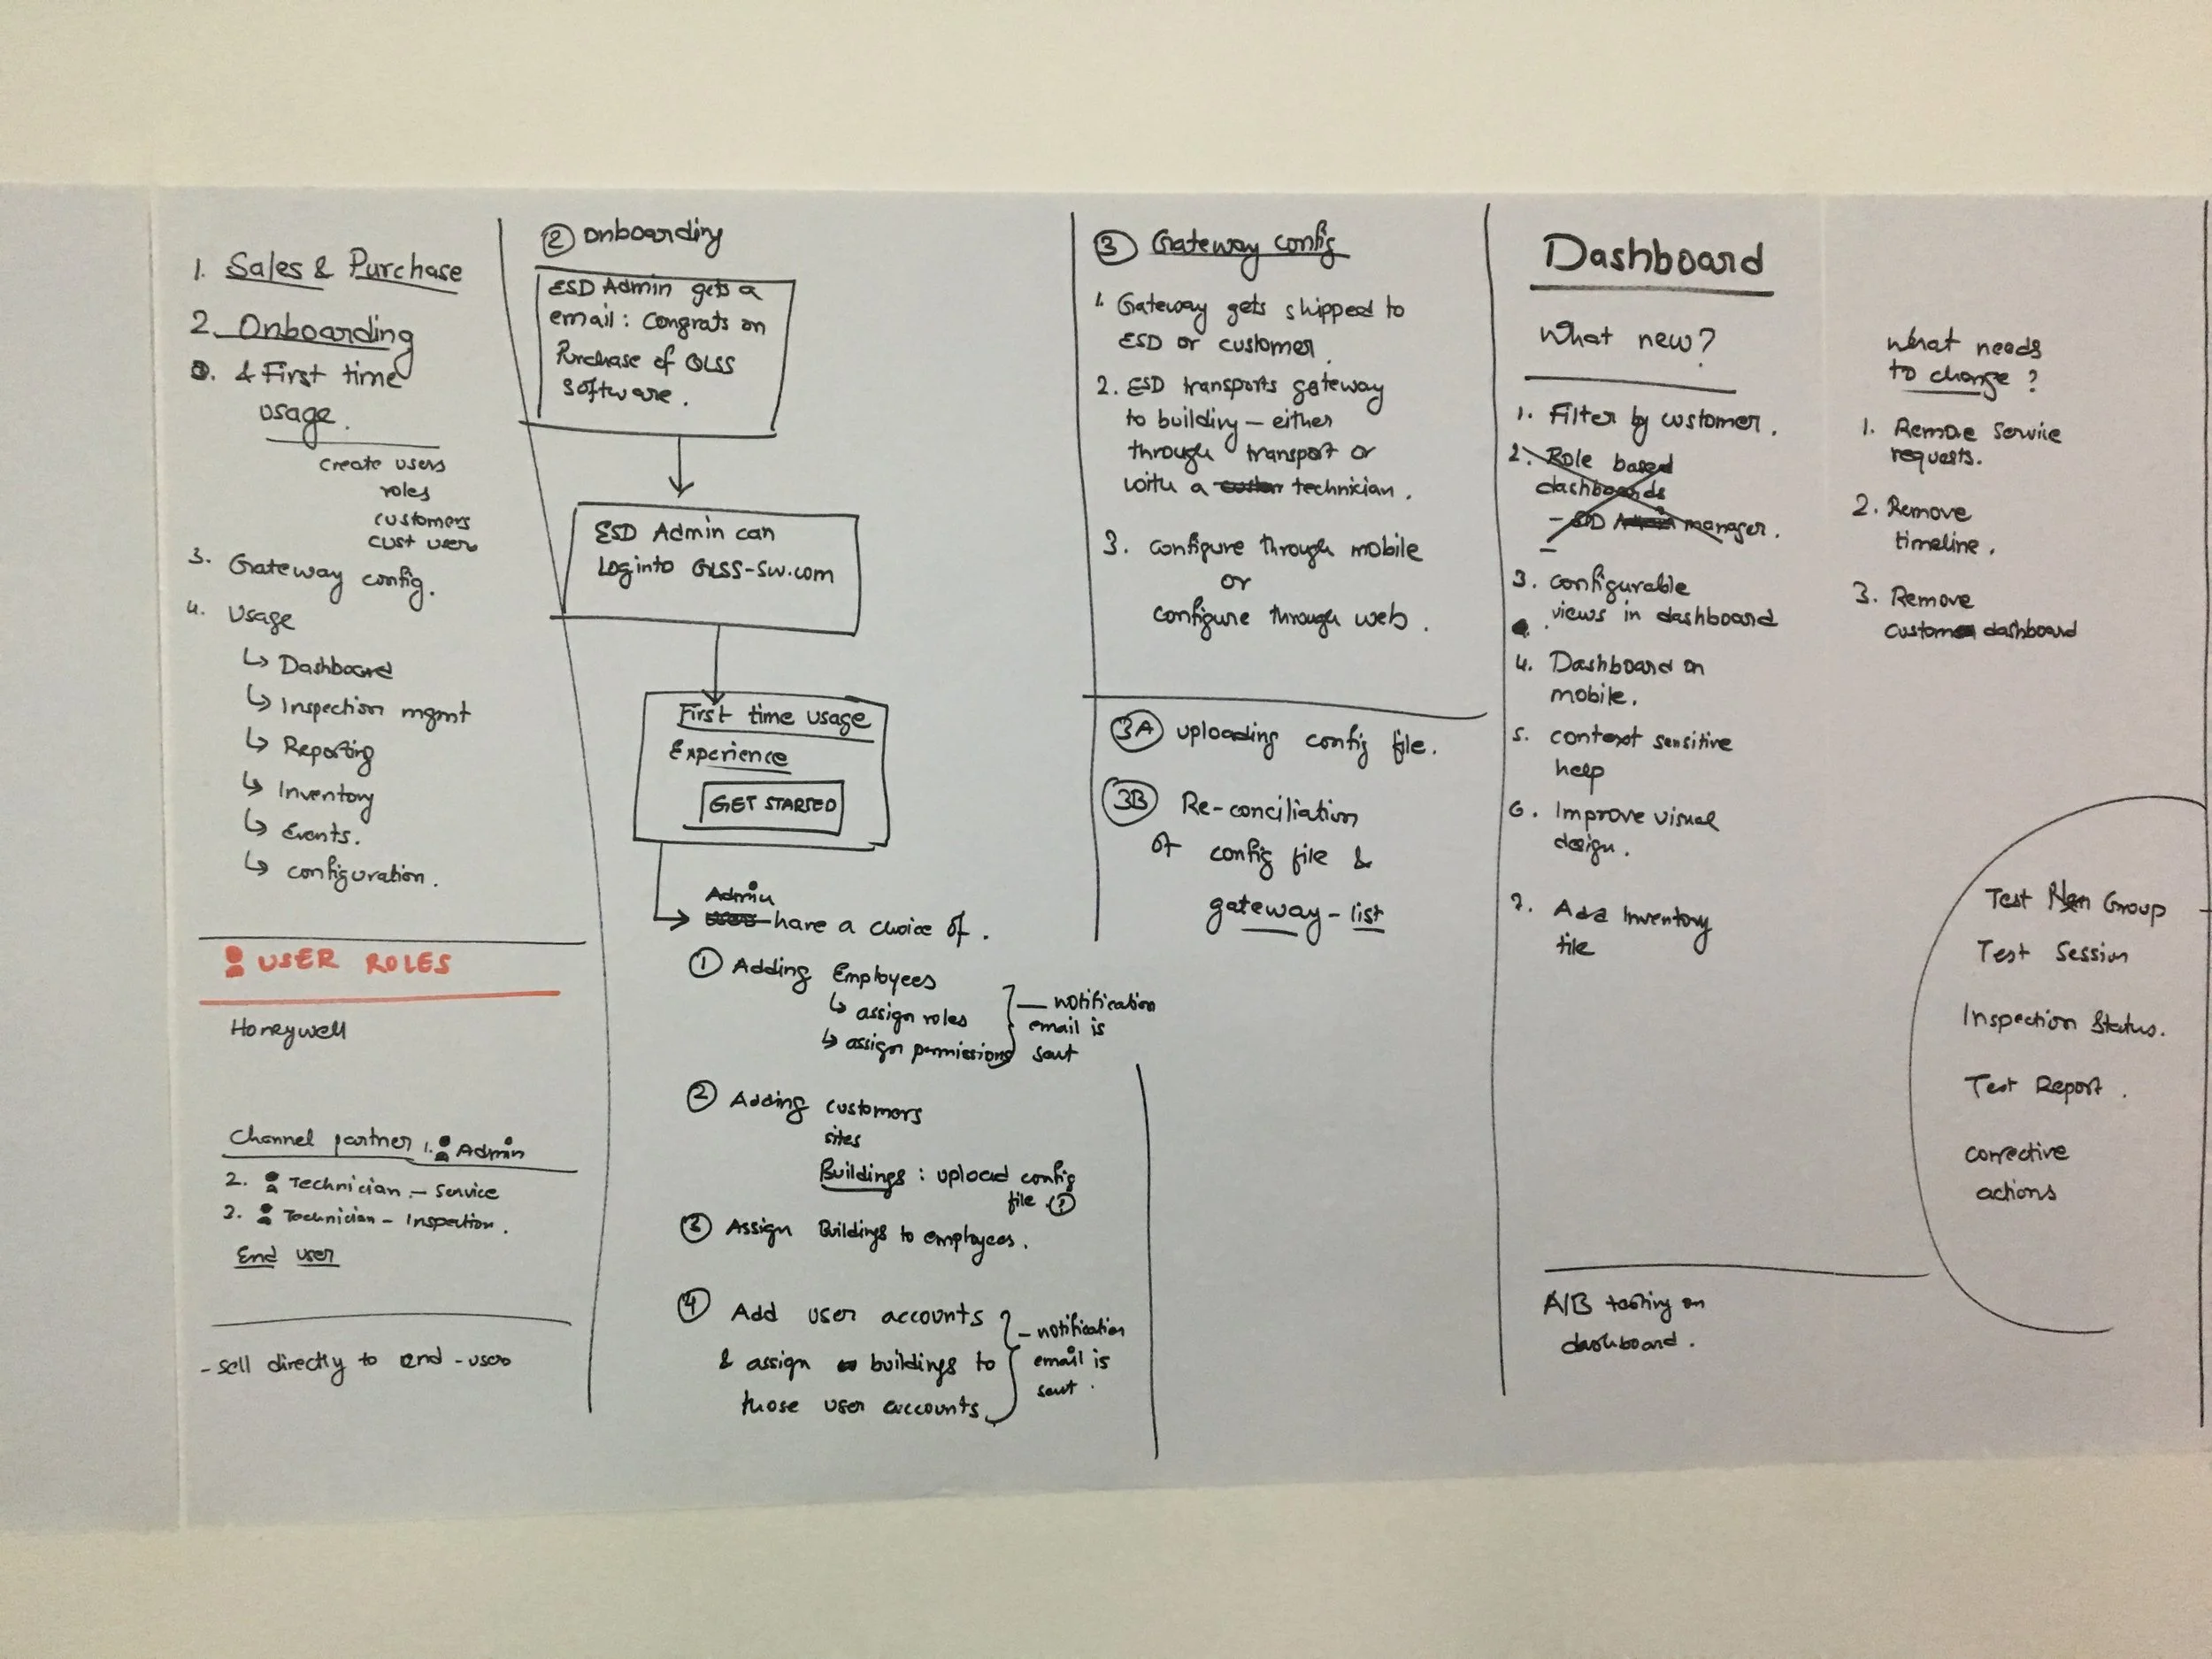 1. Sales & Purchase
2. Onboarding
& First time
usage.
create users
roles
customers
cust user
3. Gateway config.
4. Usage
↳ Dashboard
↳ Inspection mgmt
↳ Reporting
↳ Inventory
↳ Events.
↳ configuration.
USER ROLES
Honeywell
Channel partner 1. Admin
2. Technician - Service
3. Technician - Inspection.
End user
- sell directly to end-user
② Onboarding
ESD Admin gets a
email: Congrats on
Purchase of GLSS
Software.
ESD Admin can
Log into GLSS-SW.com
First time usage
Experience
GET STARTED
Admin
have a choice of.
① Adding Employees
↳ assign roles
↳ assign permissions
— notification
email is
sent
② Adding customers
sites
Buildings: upload config
file.
③ Assign Buildings to employees.
④ Add user accounts
& assign buildings to
those user accounts
- notification
email is
sent.
③ Gateway config
1. Gateway gets shipped to
ESD or customer.
2. ESD transports gateway
to building — either
through transport or
with a technician.
3. configure through mobile
or
configure through web.
3A uploading config file.
3B Re-conciliation
of config file &
gateway-list
Dashboard
What new?
1. Filter by customer.
2. Role based
dashboards
- ESD manager.
3. configurable
views in dashboard
4. Dashboard on
mobile.
5. context sensitive
help
6. Improve visual
design.
7. Add Inventory
file
A/B testing on
dashboard.
what needs
to change?
1. Remove Service
requests.
2. Remove
timeline.
3. Remove
custom dashboard
Test Group
Test Session
Inspection Status.
Test Report.
corrective
actions